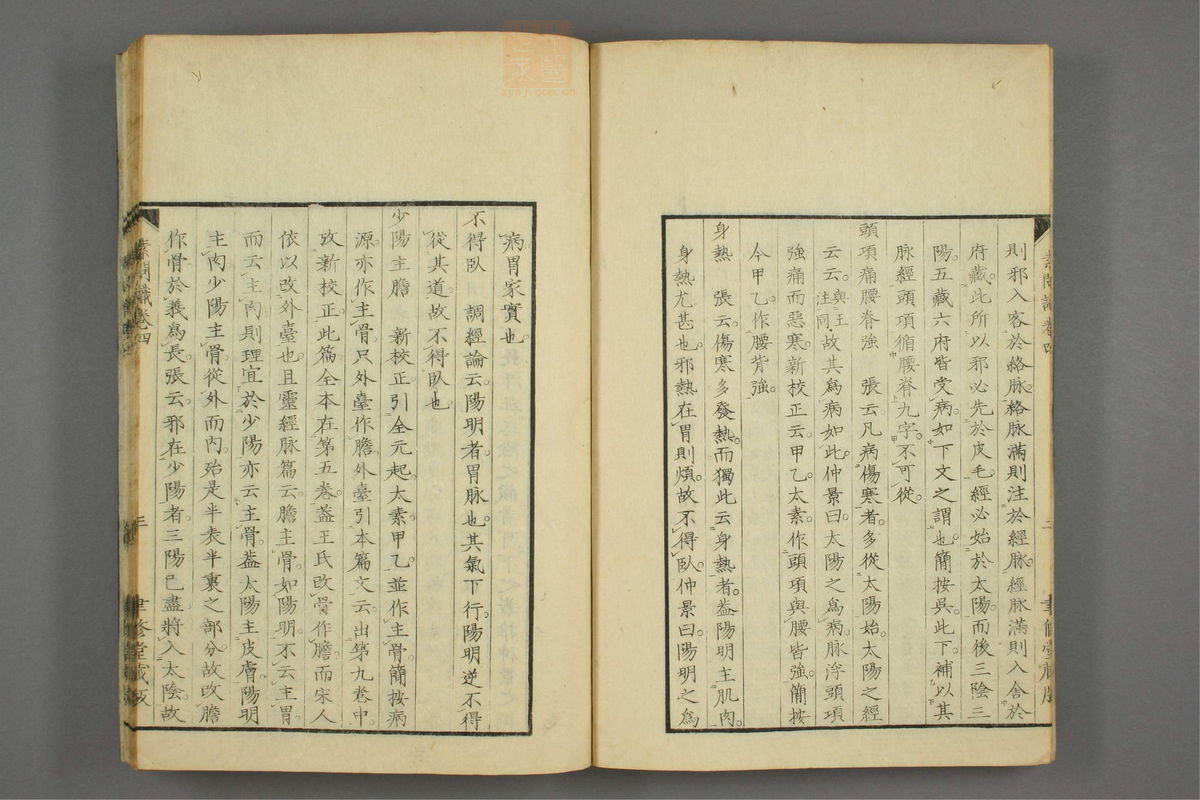 則邪入客於絡脉。絡脉滿則注於經脉。經脉滿則入舍於
府藏。此所以邪必先於皮毛。經必始於太陽。而後三陰三
陽。五藏六府皆受病。如下文之謂也。簡按吳。此下。補以其
脉經頭項循腰脊九字。不可從。
頭項痛腰脊強 張云。凡病傷寒者。多從太陽始。太陽之經
云云。與王注同。故其爲病如此。仲景曰。太陽之爲病。脉浮頭項
強痛而惡寒。新校正云。甲乙太素。作頭項與腰皆強。簡按
今甲乙。作腰背強。
身熱 張云。傷寒多發熱。而獨此云身熱者。葢陽明主肌肉。
身熱尤甚也。邪熱在胃則煩。故不得臥。仲景曰。陽明之爲
素問識卷四
二
聿修堂藏版
病。胃家實也。
不得臥 調經論云。陽明者胃脉也。其氣下行。陽明逆不得
從其道。故不得臥也。
少陽主膽 新校正。引全元起。太素。甲乙。並作主骨。簡按病
源亦作主骨。只外臺作膽。外臺引本篇文云。出第九卷中。
攷新校正。此篇全本在第五卷。葢王氏改骨作膽。而宋人
依以改外臺也。且靈經脉篇云。膽主骨。如陽明。不云主胃。
而云主肉。則理宜於少陽亦云主骨。葢太陽主皮膚。陽明
主肉。少陽主骨。從外而內。殆是半表半裏之部分。故改膽
作骨。於義爲長。張云。邪在少陽者。三陽已盡。將入太陰。故
素問識卷四
三
聿修堂藏版